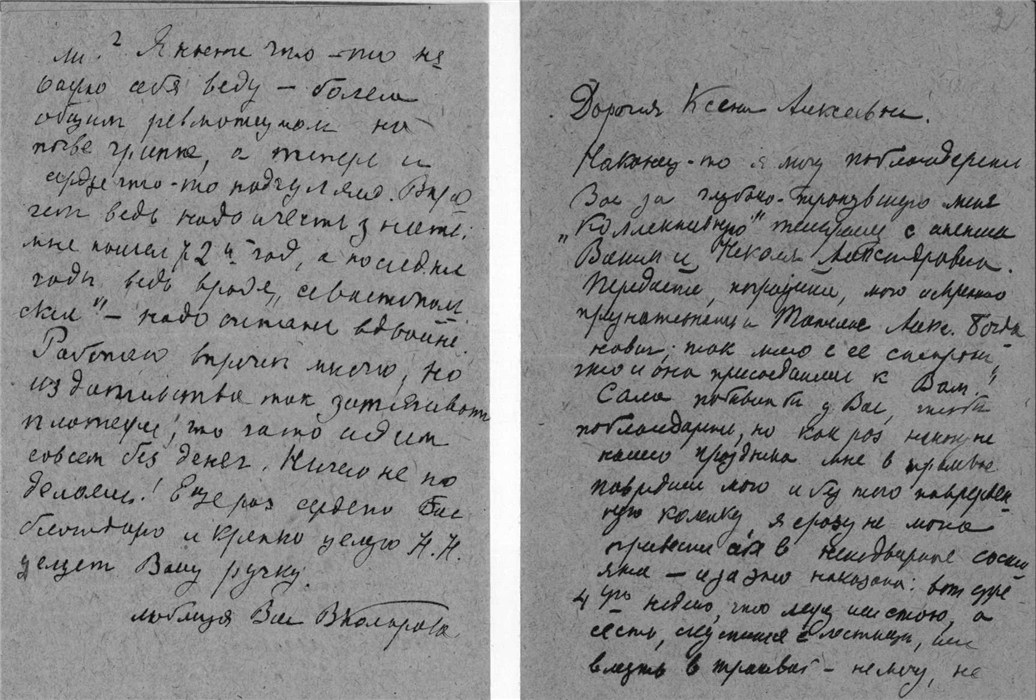 Дорогая Ксения Алексеевна.
Наконец-то я могу поблагодарить
Вас за глубоко-тронувшую меня
„коллективную" телеграмму с
Вашим и Александровны.
Передайте, пожалуйста, мою искреннюю
признательность и Татьяне Алек. Богда
нович; так мило с ее стороны
что и она присоединилась к Вам!
Сама побывала бы у Вас, чтобы
поблагодарить, но как раз накануне
нашего праздника мне в трамвае
повредили мою и без того поврежден
ную коленку, я сразу не могла
привести ее в неподвижное состоя
яние — и за это наказана: вот уже
4ую неделю, что лежу или стою, а
сесть, спуститься с лестницы, или
влезть в трамвай — не могу, не
ли? Я кстати что-то не
важно себя веду — болела
общим ревматизмом на
почве гриппа, а теперь и
сердце что-то подгуляло. Впро
чем ведь надо и честь знать:
мне пошел 72й год, а последние
годы ведь вроде „севастополь
ских" — надо считать вдвойне.
Работаю впрочем много, но
издательства так затягивают
платежи, что часто сидим
совсем без денег. Ничего не по
делаешь! Еще раз сердечно Вас
благодарю и крепко целую Н.Н.
целует Вашу ручку.
любящая Вас